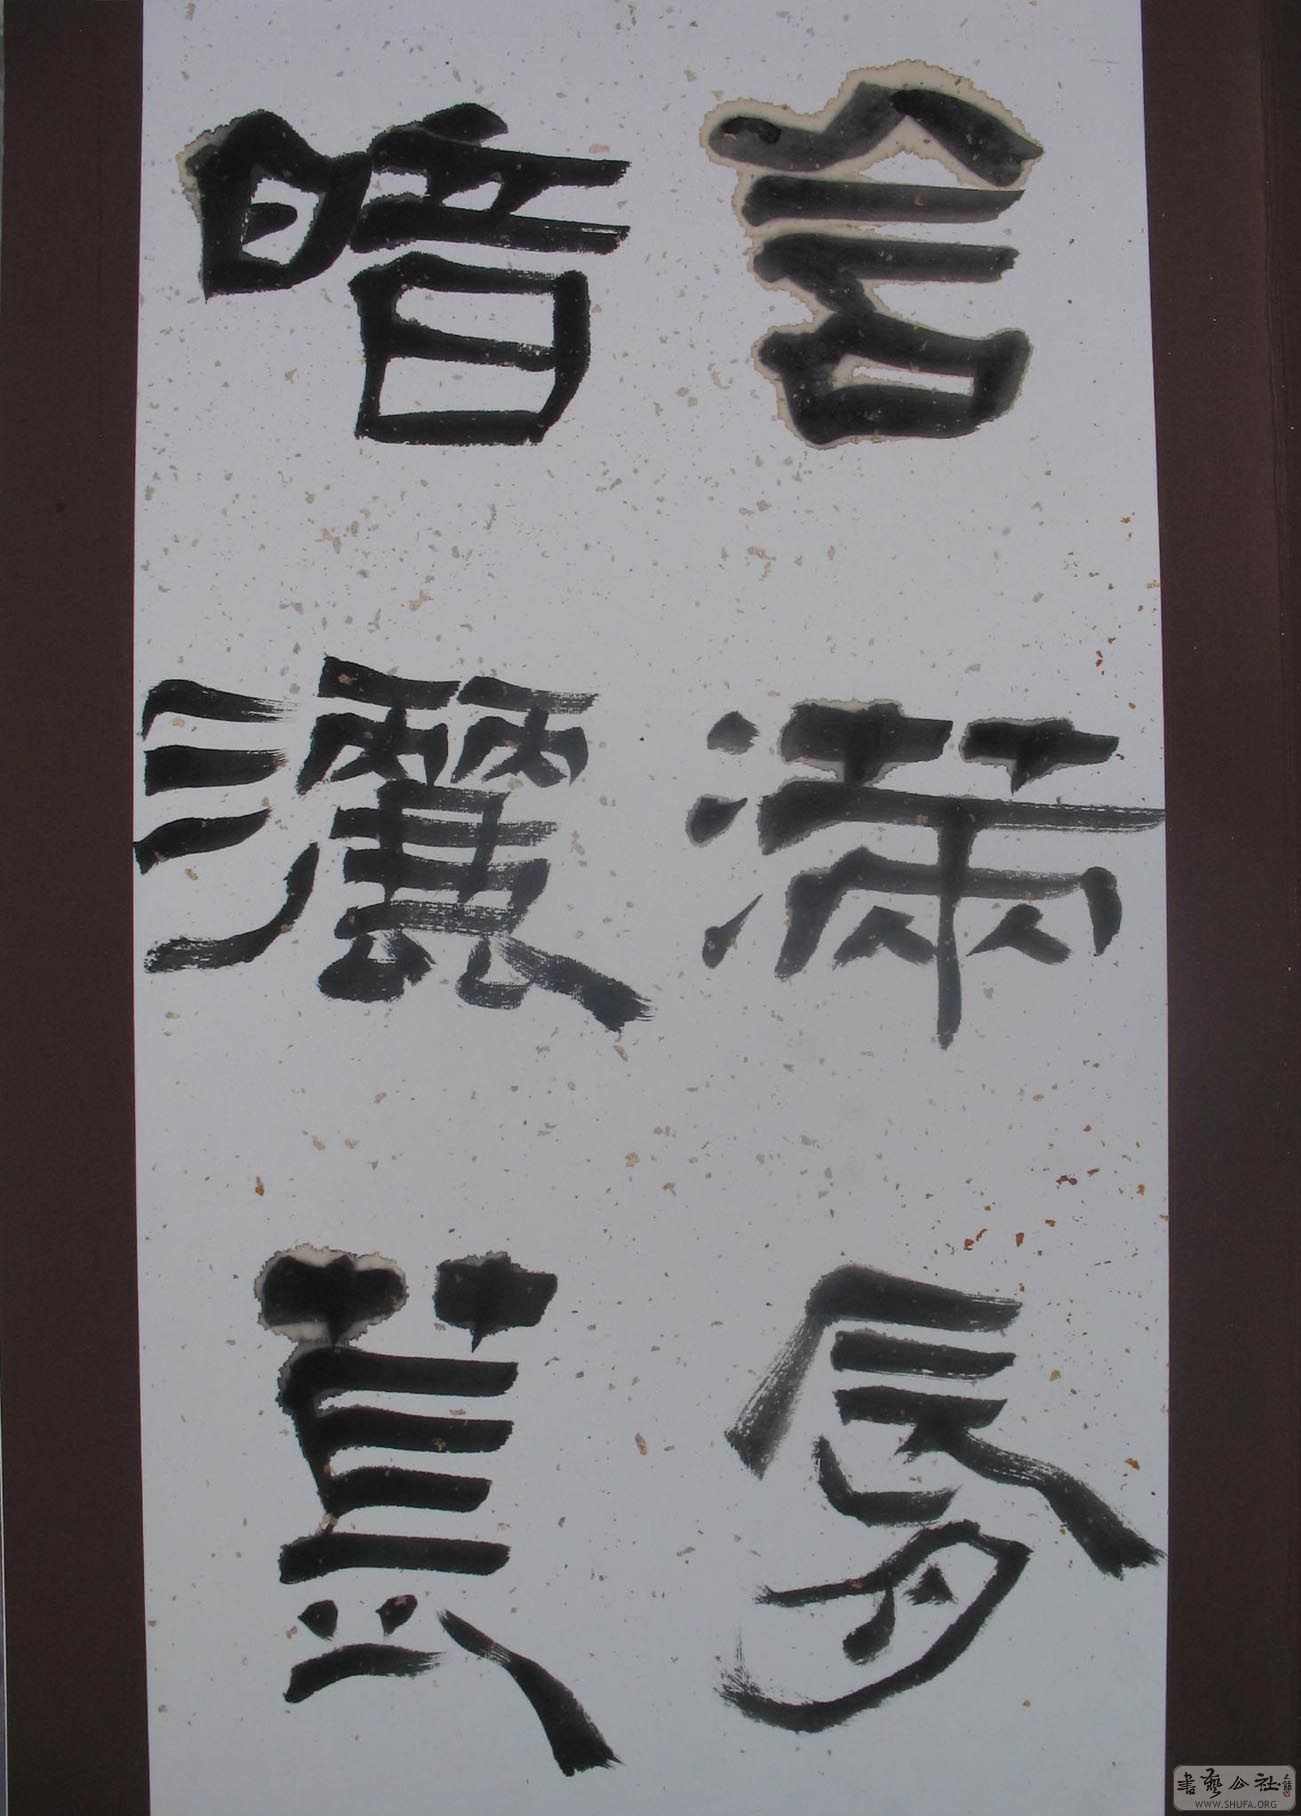 含滿脣
暗灑萇
書藝公社
WWW.SHUFA.ORG